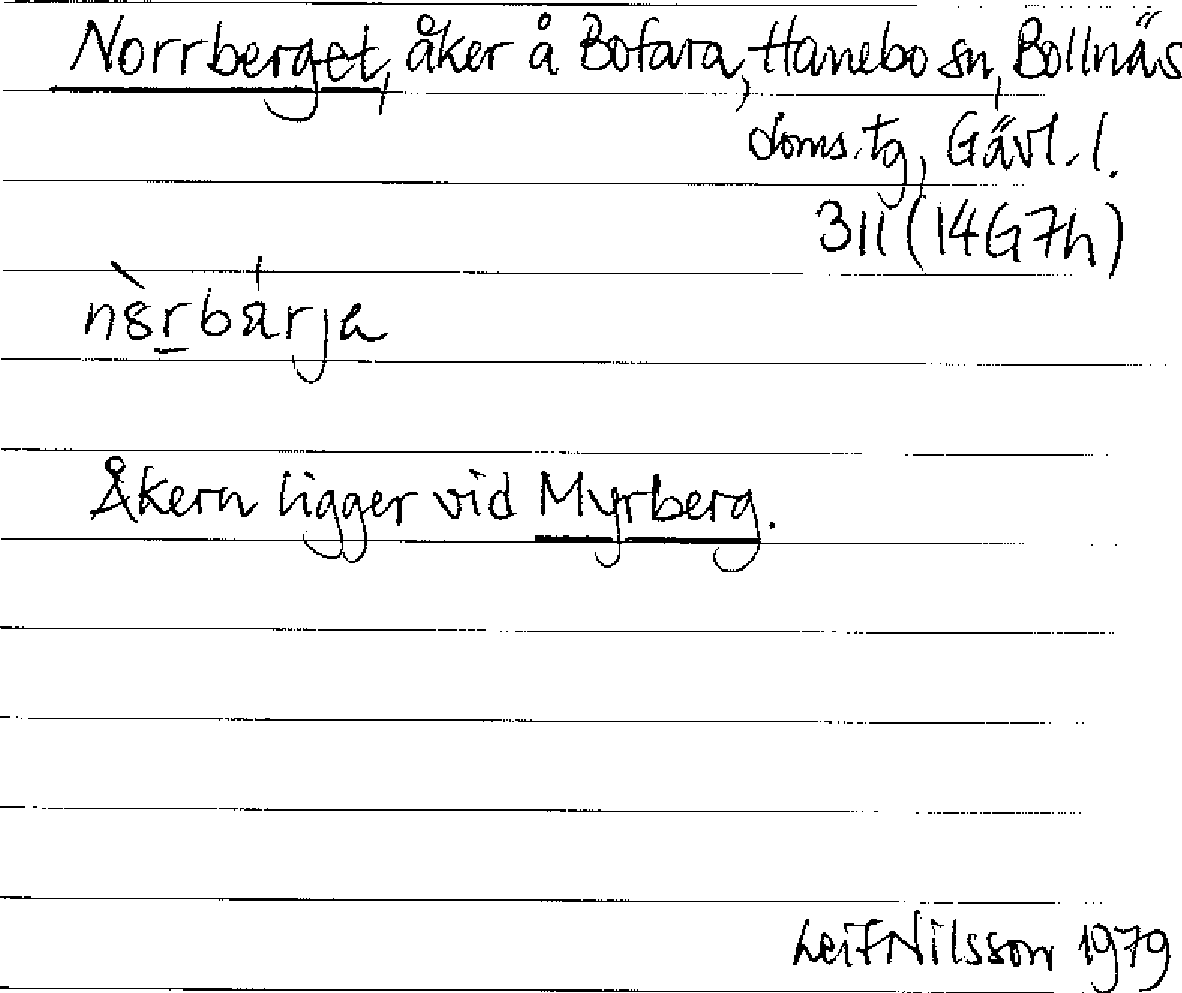 Norrberget, åker å Bofara, Hanebo sn, Bollnäs
doms.tg, Gävl. l.
311 (14G7h)
Åkern ligger vid Myrberg.
Leif Nilsson 1979